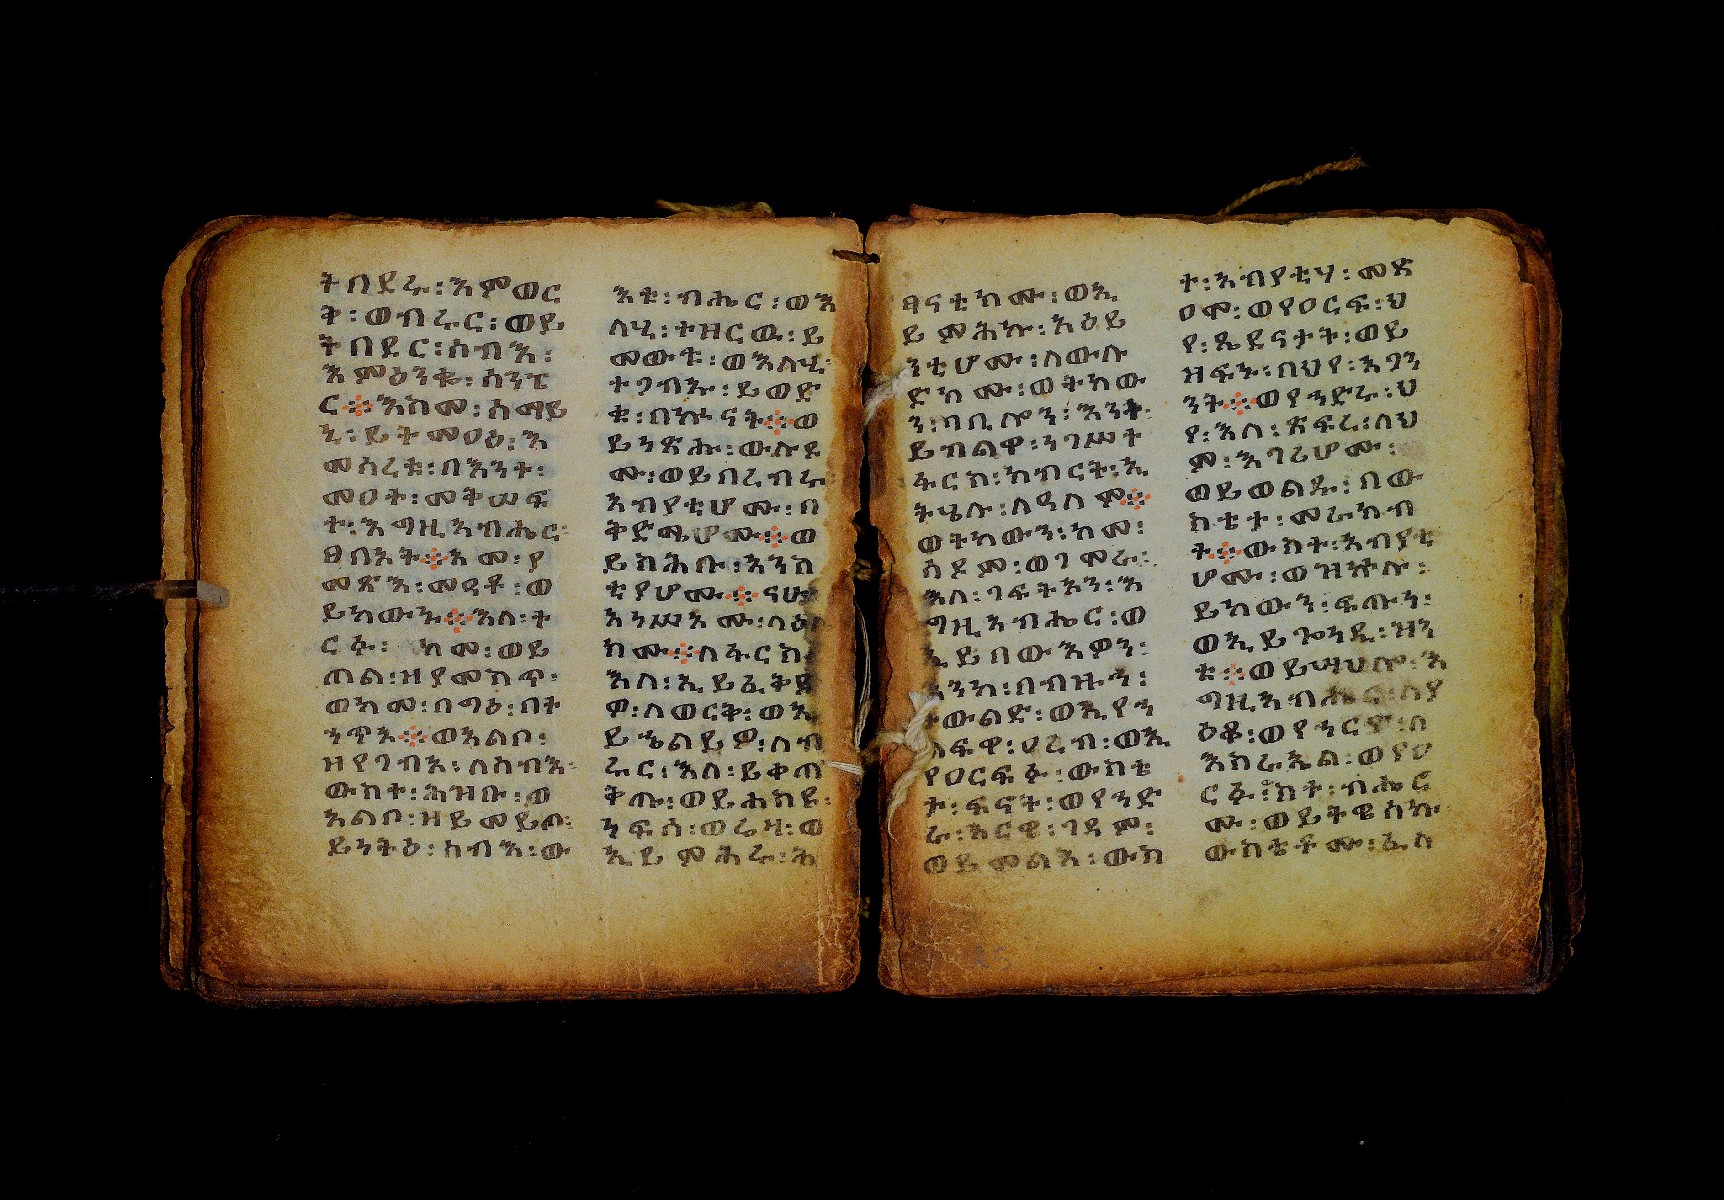 ትበደሩ፡እምወር
ቅ፡ወብሩር፡ወይ
ትበደር፡ሰብእ፡
እምዕንቈ፡ሰንፔ
ር፨እስመ፡ሰማይ
ኒ፡ይትመዐዕ፡ን
መሰረቱ፡በእንተ፡
መዐተ፡መቅሠፍ
ተ፡እግዚአብሔር፡
ፀበኦት፨አመ፡ያ
መጽእ፡መዓቶ፡ወ
ይከውኑ፨እለ፡ተ
ርፉ፡ከመ፡ወይ
ጠል፡ዘያመስጥ፡
ወከመ፡በግዕ፡በት
ንትኅ፨ወአልቦ፡
ዘየገብእ፡ለሰብእ፡
ውስተ፡ሕዝቡ፡ወ
አልቦ፡ዘይመይጦ፡
ይነትዕ፡ሰብእ፡ው
እቱ፡ብሔር፡ወእ
ለሂ፡ተዘርዉ፡ይ
መውቱ፡ወእለሂ፡
ተጋብኡ፡ይወድ
ቁ፡በኵናት፨ወ
ይነጽሑ፡ውሉዶ
ሙ፡ወይበረብሩ
አብያቲሆሙ፡በ
ቅድሜሆሙ፨ወ
ይከሕቡ፡አንስ
ቲያሆሙ፨ናሁ፡
አነሥእሙ፡ላዕሌ
ክሙ፨ለፋርስ፡
እለ፡ኢይፈቅድ
ዎ፡ለወርቅ፡ወኢ
ይኄልይዎ፡ለብ
ሩር፡እለ፡ይቀጠ
ቅጡ፡ወይሐስዩ፡
ነፍሰ፡ወሬዛ፡ወ
ኢይምሕሩ፡ሕ
ፃናቲክሙ፡ወኢ
ይምሕኩ፡አዕይ
ንቲሆሙ፡ለውሉ
ድክሙ፡ወትከው
ን፡ባቢሎን፡እንተ፡
ይብልዋ፡ንገሥተ
ፋርስ፡ክብርት፡ኢ
ትሄሉ፡ለዓለም፨
ወትከውን፡ከመ፡
ሰዶም፡ወገሞራ፡
እለ፡ገፍትኦን፡እ
ግዚአብሔር፡ወ
ኢይበውእዎን፡
እንከ፡በብዙኅ፡
ትውልድ፡ወኢየኀ
ልፍዋ፡ዐረብ፡ወኢ
የዐርፍፉ፡ውስቴ
ታ፡ፍናተ፡ወየኀድ
ራ፡አርዌ፡ገዳም፡
ወይመልእ፡ውስ
ተ፡አብያቲሃ፡መጽ
ዐሞ፡ወየዐርፍ፡ህ
የ፡ጼደናተት፡ወይ
ዘፍኑ፡በህየ፡አጋን
ንት፨ወየኀድሩ፡ህ
የ፡እለ፡ጽፍረ፡ለህ
ም፡እገሪሆሙ፡
ወይወልዱ፡በው
ስቴተ፡መራክብ
ት፨ውስተ፡አብያቲ
ሆሙ፡ወዝኵሉ፡
ይከውን፡ፍጡነ፡
ወኢይጐነዲ፡ዝን
ቱ፨ወይሣህሎ፡እ
ግዚአብሔር፡ለያ
ዕቆ፡ወየኀርዮ፡ለ
እስራኤል፡ወየዐ
ርፉ፡ስተ፡ብሔር
ሙ፡ወይትዌሰኩ፡
ውስቴቶሙ፡ፈለ